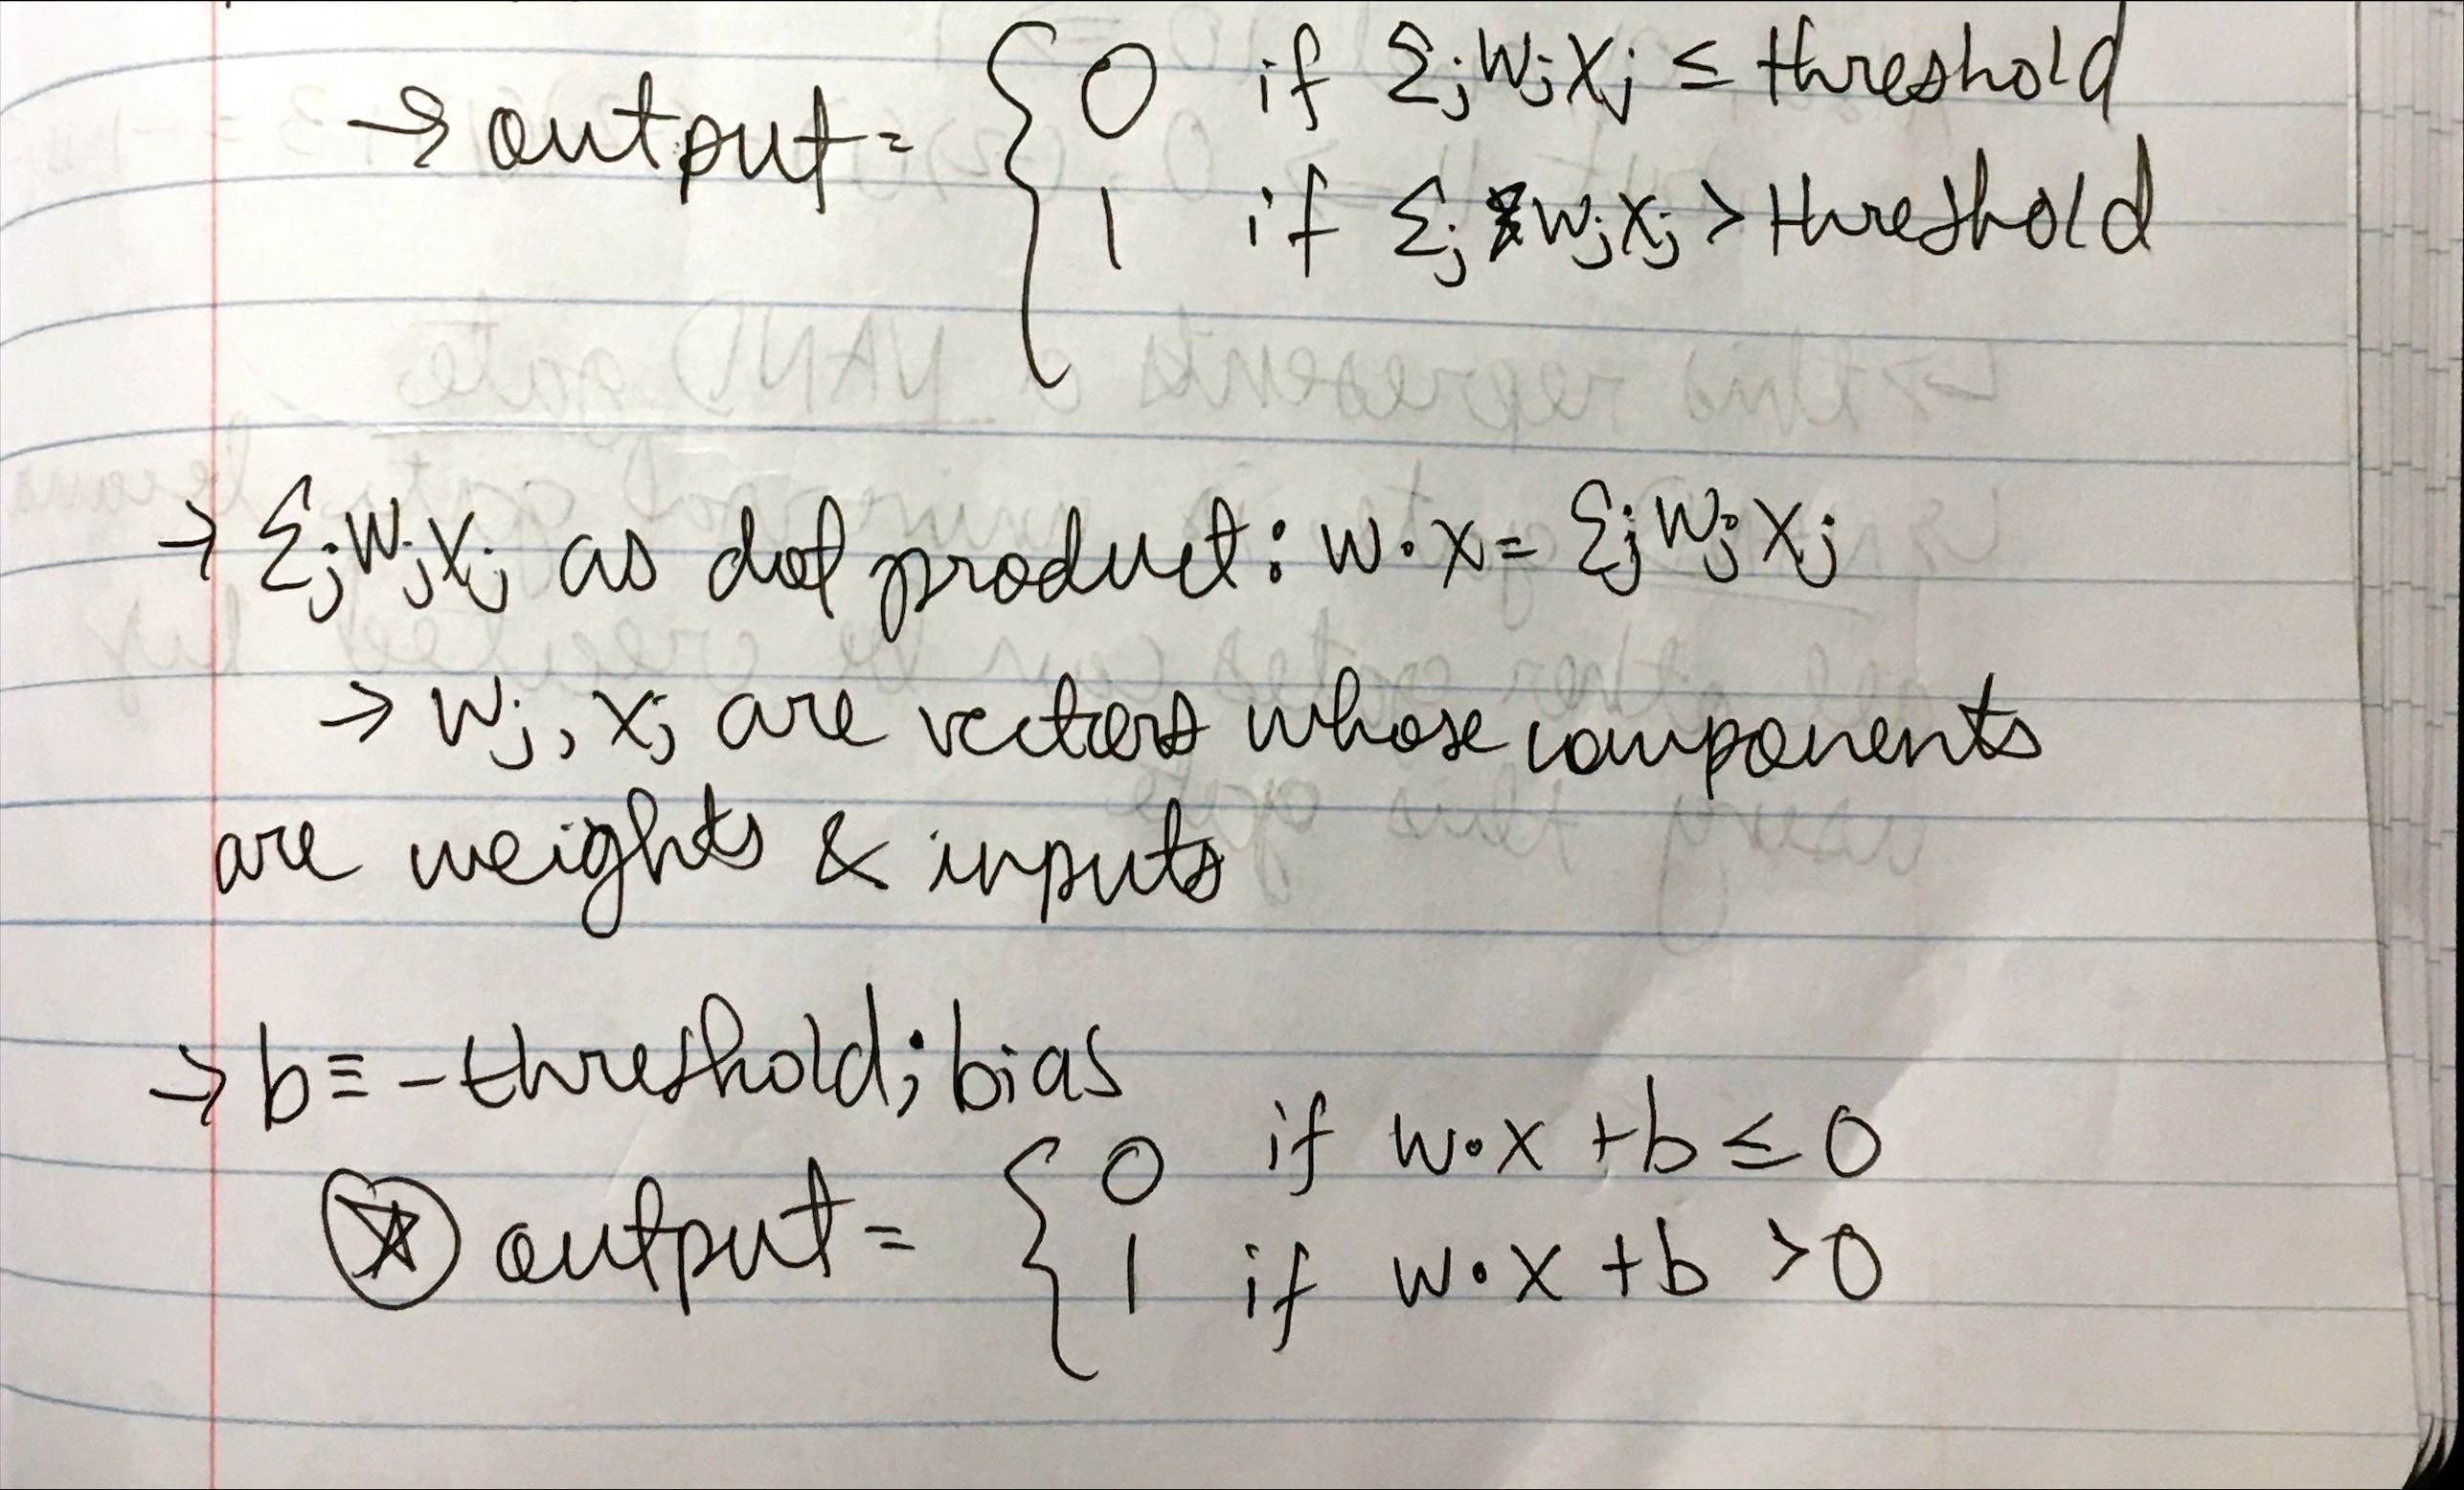 → output = { 0 if Σⱼ wⱼ xⱼ ≤ threshold
1 if Σⱼ wⱼ xⱼ > threshold
→ Σⱼ wⱼ xⱼ as dot product: w · x = Σⱼ wⱼ xⱼ
→ wⱼ, xⱼ are vectors whose components
are weights & inputs
→ b ≡ -threshold; bias
☆ output = { 0 if w · x + b ≤ 0
1 if w · x + b > 0